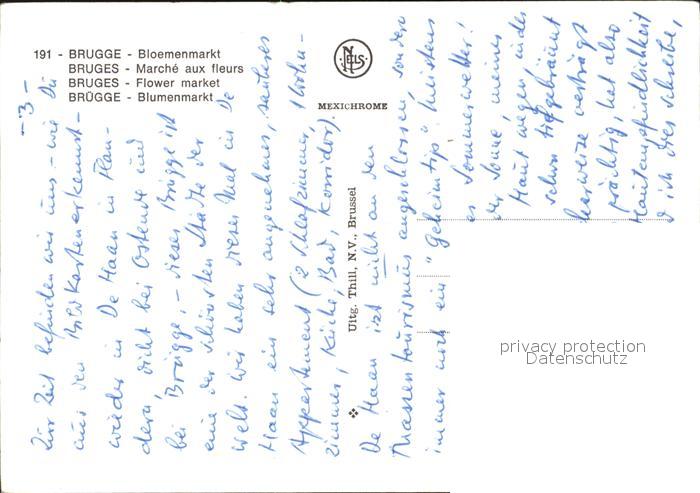 191 - BRUGGE - Bloemenmarkt
BRUGES - Marché aux fleurs
BRUGES - Flower market
BRÜGGE - Blumenmarkt
NELS
MEXICHROME
Uitg. Thill, N.V., Brussel
- 3 -
Zur Zeit befinden wir uns - wie Du
aus den Bild Karten erkennst -
wieder in De Haan in Flan-
dern dicht bei Ostende und
bei Brügge, - dieses Brügge ist
eine der schönsten Städte der
Welt. Wir haben dieses Mal in De
Haan ein sehr angenehmes, sauberes
Appartement (2 Schlafzimmer, Wohn-
zimmer, Küche, Bad, Korridor).
De Haan ist nicht an den
Massentourismus angeschlossen, sondern
immer noch ein "Geheimtip". Meistens
es Sommerwetter!
der Sonne, meines
Haut wegen, indes
schon tiefgebräunt
verträgt
prächtig, hat also
Hautempfindlichkeit
d ich dies schreibe,
privacy protection
Datenschutz